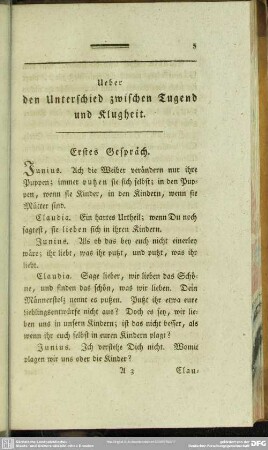 5
Ueber
den Unterschied zwischen Tugend
und Klugheit.
Erstes Gespräch.
Junius. Ach die Weiber verändern nur ihre
Puppen; immer putzen sie sich selbst; in den Pup-
pen, wenn sie Kinder, in den Kindern, wenn sie
Mütter sind.
Claudia. Ein hartes Urtheil; wenn Du noch
sagtest, sie lieben sich in ihren Kindern.
Junius. Als ob das bey euch nicht einerley
wäre; ihr liebt, was ihr putzt, und putzt, was ihr
liebt.
Claudia. Sage lieber, wir lieben das Schö-
ne, und finden das schön, was wir lieben. Dein
Männerstolz nennt es putzen. Putzt ihr etwa eure
Lieblingsentwürfe nicht aus? Doch es sey, wir lie-
ben uns in unsern Kindern; ist das nicht besser, als
wenn ihr euch selbst in euren Kindern plagt?
Junius. Ich verstehe Dich nicht. Womit
plagen wir uns oder die Kinder?
A 3 Clau-
DFG